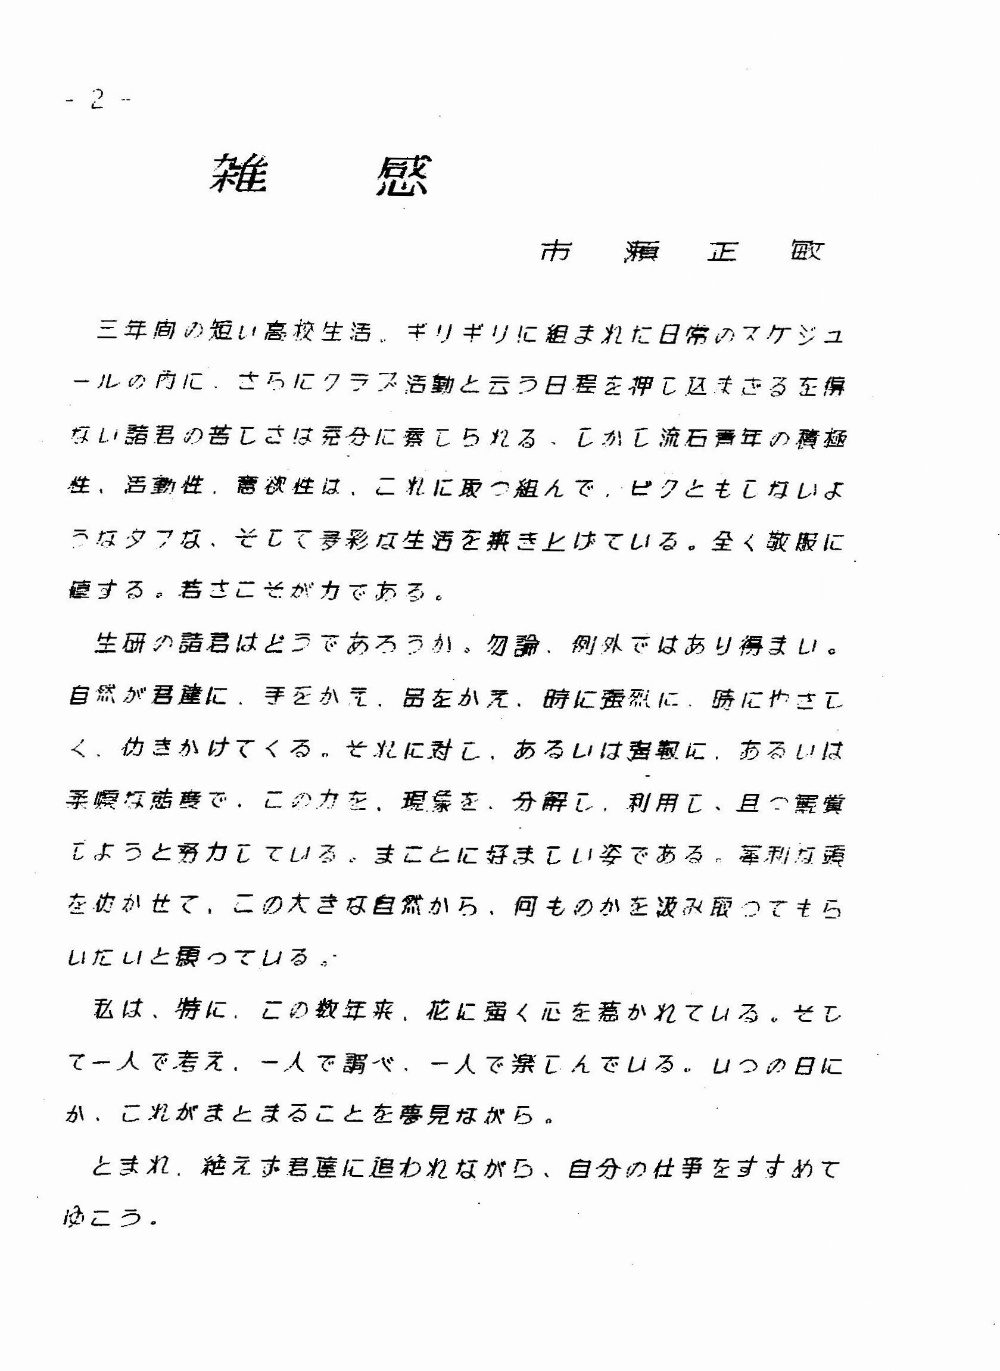 - 2 -
雑 感
市 瀬 正 敏
三年間の短い高校生活。ギリギリに組まれた日常のスケジュ
ールの内に、さらにクラブ活動と云う日程を押し込まざるを得
ない諸君の苦しさは充分に察しられる、しかし流石青年の積極
性、活動性、意欲性は、これに取っ組んで、ビクともしないよ
うなタフな、そして多彩な生活を築き上げている。全く敬服に
値する。若さこそが力である。
生研の諸君はどうであろうか。勿論、例外ではあり得まい。
自然が君達に、手をかえ、品をかえ、時に強烈に、時にやさし
く、仂きかけてくる。それに対し、あるいは強靱に、あるいは
柔順な態度で、この力を、現象を、分解し、利用し、且つ観賞
しようと努力している。まことに好ましい姿である。革利な頭
を仂かせて、この大きな自然から、何ものかを汲み取ってもら
いたいと願っている。
私は、特に、この数年来、花に強く心を惹かれている。そし
て一人で考え、一人で調べ、一人で楽しんでいる。いつの日に
か、これがまとまることを夢見ながら。
とまれ、絶えず君達に追われながら、自分の仕事をすすめて
ゆこう。